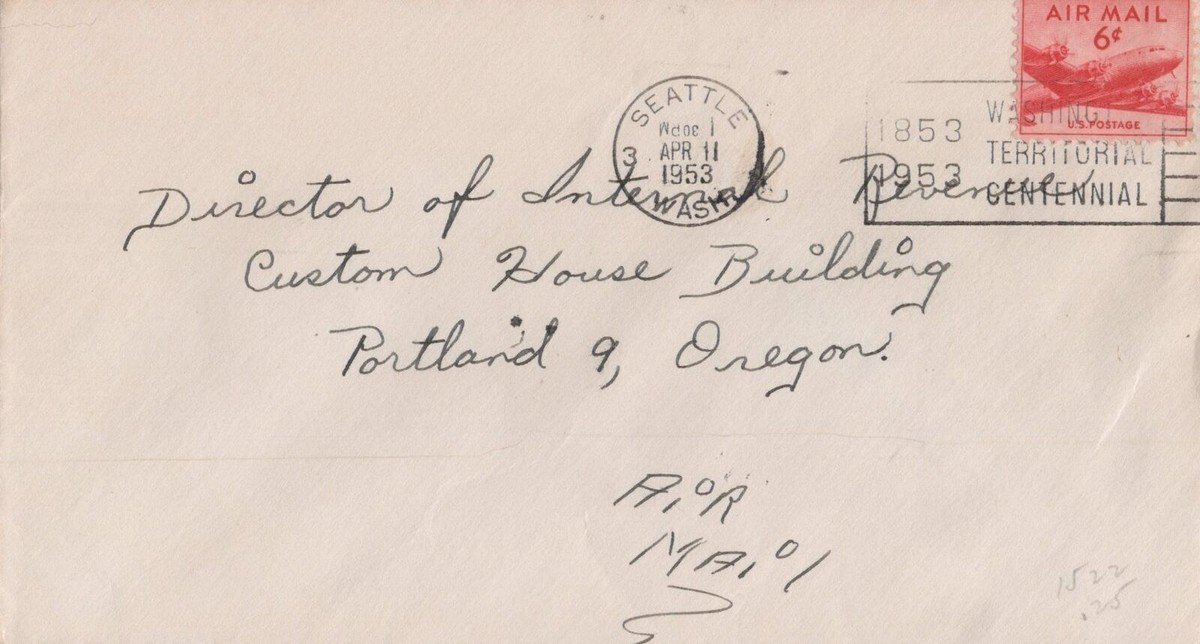 AIR MAIL
6¢
U.S. POSTAGE
SEATTLE
3
APR 11
1953
WASH.
1853
1953
WASHINGT
TERRITORIAL
CENTENNIAL
Director of Internal Revenue
Custom House Building
Portland 9, Oregon.
AiR
MAil
1522
.25